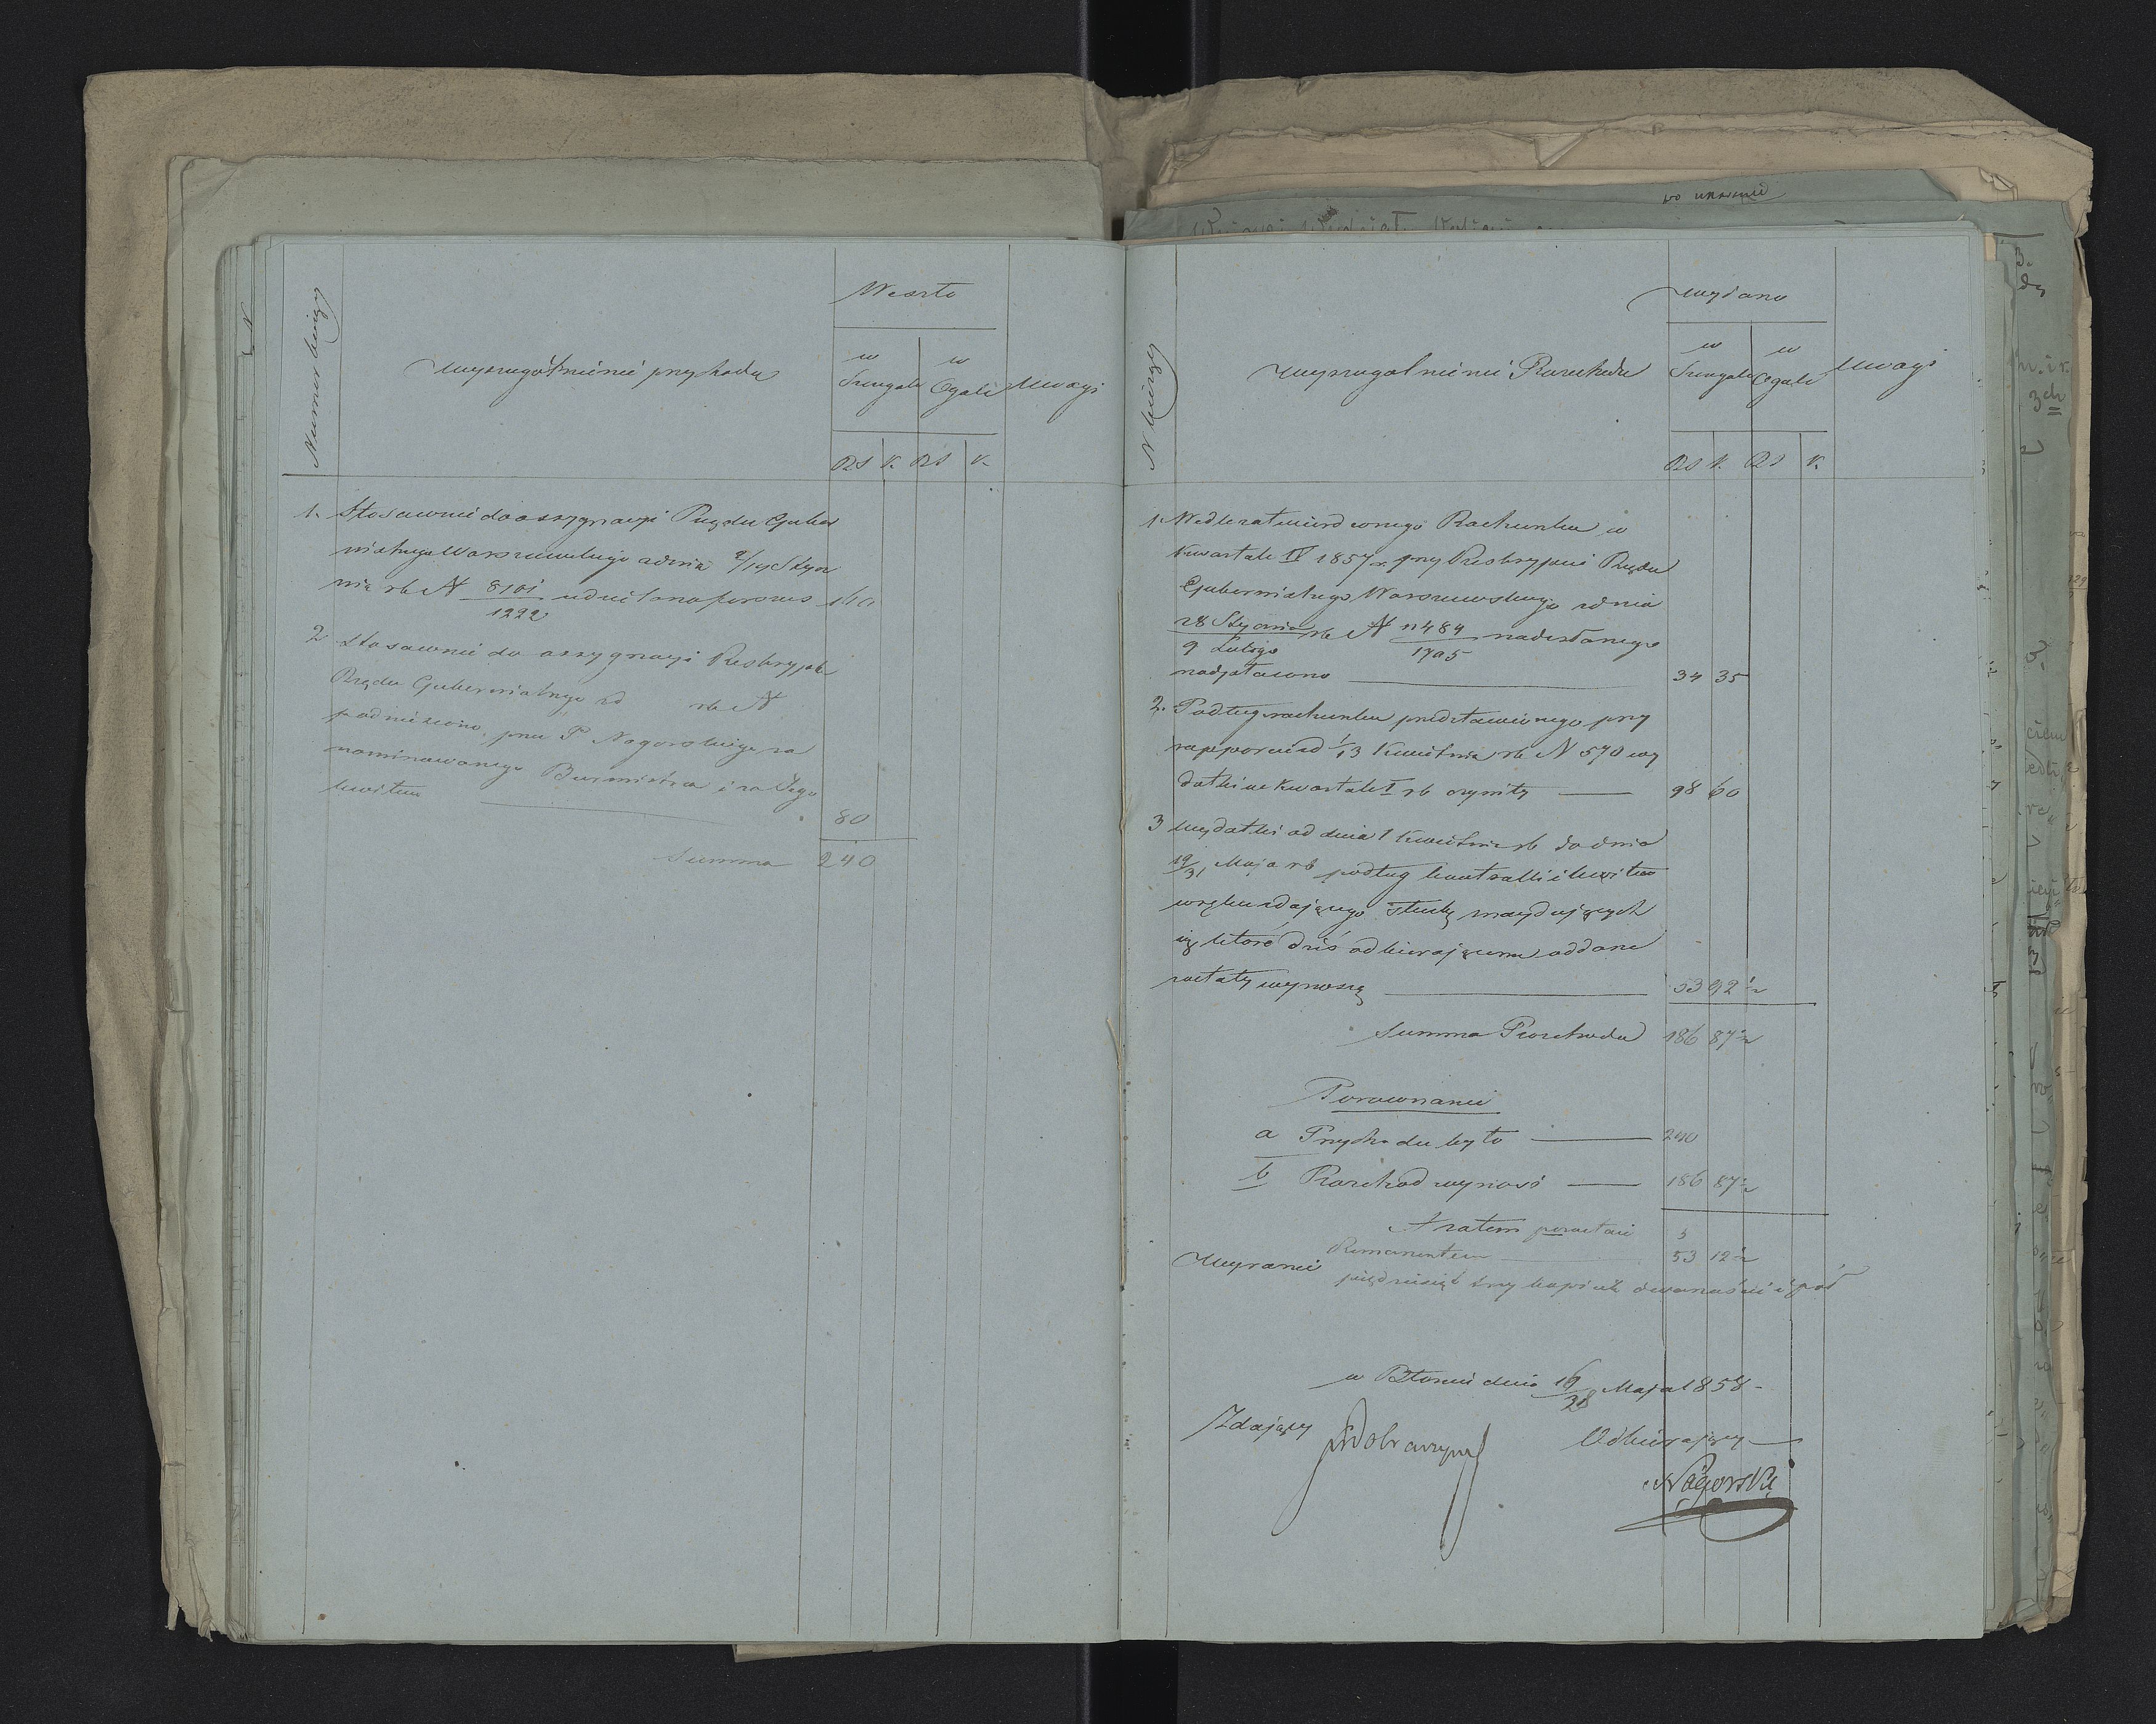 Numer bieżący
Wyszczególnienie przychodu
Weszło
w Szczególe
w Ogóle
Uwagi
RS K. RS K.
1. Stosownie do assygnacyi Rządu Guber
nialnego Warszawskiego z dnia 2/14 Stycz
nia rb N 8101/1222 udzielono forszus 160
2 Stosownie do assygnacyi Reskryptu
Rządu Gubernialnego zd rb N
podniesiono, przez P Nagorskiego za
nominowanego Burmistrza i za Jego
kwitem 80
Summa 240
N bieżący
Wyszczególnienie Rozchodu
Wydano
w Szczególe
w Ogóle
Uwagi
RS K. RS K.
1. Wedle zatwierdzonego Rachunku w
Kwartale IV 1857 r. przy Reskrypcie Rządu
Gubernialnego Warszawskiego z dnia
28 Stycznia/9 Lutego rb N 11484/1705 nadesłanego
34 35
2. Podług rachunku przedstawionego przy
rapporcie d 1/13 Kwietnia rb N 570 wy
datki w Kwartale I rb czynity 98 60
3 Wydatki od dnia 1 Kwietnia rb do dnia
19/31 Maja rb podług kontrolli i kwitów
w ręku zdającego służbę znajdujących
się które dziś odbierającemu oddane
zostały wynoszą 53 92 1/2
Summa Rozchodu 186 87 1/2
Porownanie
a Przychodu było 240
b Rozchod wynosi 186 87 1/2
A zatem pozostaie
Remanentem 53 12 1/2
Wyraznie pięćdziesiąt trzy kopiiek dwanaście i pół
w Błoniu dnia 16/28 Maja 1858 -
Zdający
Odbierający
Nagorski